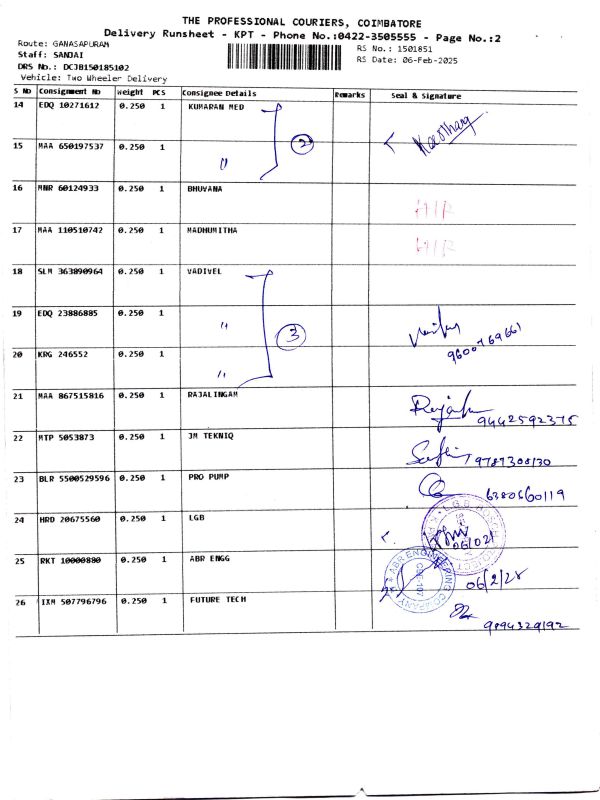 THE PROFESSIONAL COURIERS, COIMBATORE
Delivery Runsheet - KPT - Phone No.:0422-3505555 - Page No.:2
Route: GANASAPURAM
RS No.: 1501851
Staff: SANJAI
RS Date: 06-Feb-2025
DRS No.: DCJB150185102
Vehicle: Two Wheeler Delivery
S No Consignment No Weight PCS Consignee Details Remarks Seal & Signature
14 EDQ 10271612 0.250 1 KUMARAN MED
15 MAA 650197537 0.250 1 " 2
16 MNR 60124933 0.250 1 BHUVANA
17 MAA 110510742 0.250 1 MADHUMITHA
18 SLM 363890964 0.250 1 VADIVEL
19 EDQ 23886885 0.250 1 " 3
9600769661
20 KRG 246552 0.250 1 "
21 MAA 867515816 0.250 1 RAJALINGAM
9442592375
22 MTP 5053873 0.250 1 JM TEKNIQ
9787308130
23 BLR 5500529596 0.250 1 PRO PUMP
6380560119
24 HRD 20675560 0.250 1 LGB
06/02/
25 RKT 10000880 0.250 1 ABR ENGG
ABR ENGINEERING COMPANY
06/2/25
26 IXM 507796796 0.250 1 FUTURE TECH
9894329192